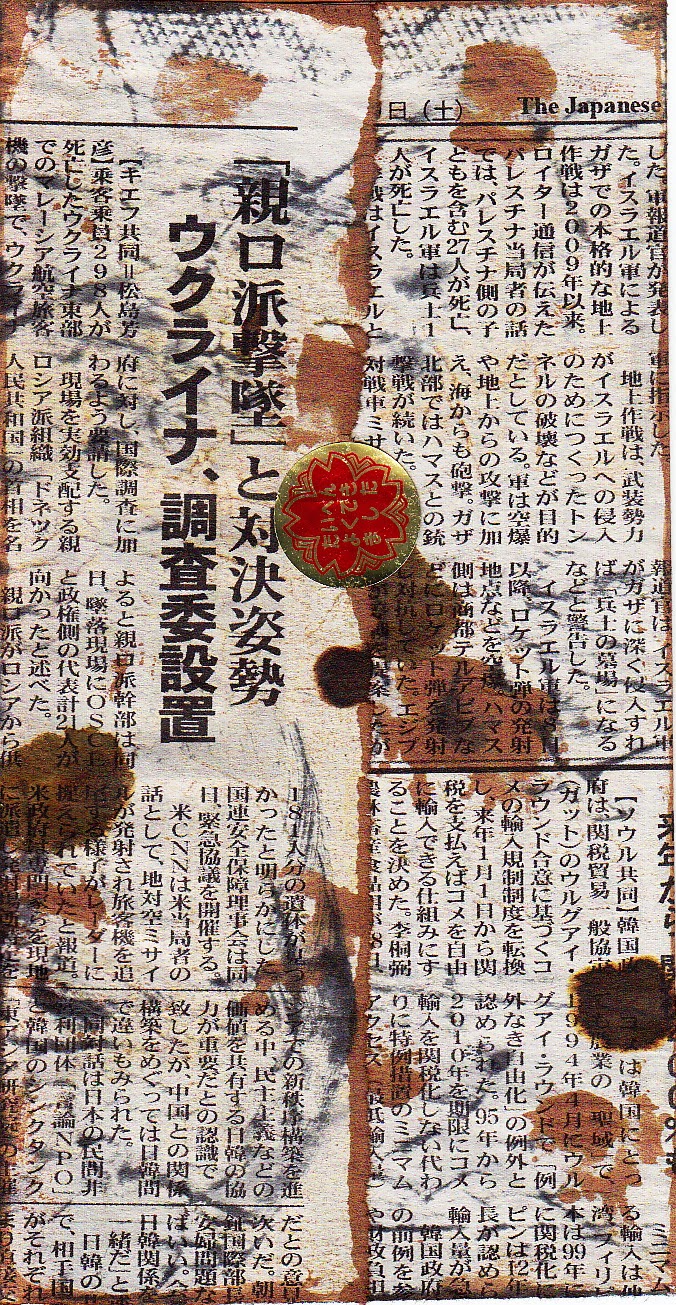 日（土）
The Japanese
した。軍報道官が発表し
た。イスラエル軍による
ガザでの本格的な地上
作戦は2009年以来。
ロイター通信が伝えた
パレスチナ当局者の話
では、パレスチナ側の子
どもを含む27人が死亡、
イスラエル軍は兵士1
人が死亡した。
戦はイスラエルと
軍に指示した。
地上作戦は、武装勢力
がイスラエルへの侵入
のためにつくったトン
ネルの破壊などが目的
だとしている。軍は空爆
や地上からの攻撃に加
え、海からも砲撃。ガザ
北部ではハマスとの銃
撃戦が続いた。
対戦車ミサ
報道官は、イスラエル軍
がガザに深く侵入すれ
ば「兵士の墓場」になる
などと警告した。
イスラエル軍は
以降、ロケット弾の発射
地点などを空爆。ハマス
側は商都テルアビブな
どにロケット弾を発射
し対抗していた。エジプ
「親ロ派撃墜」と対決姿勢
ウクライナ、調査委設置
【キエフ共同＝松島芳
彦】乗客乗員298人が
死亡したウクライナ東部
でのマレーシア航空旅客
機の撃墜で、ウクライナ
府に対し、国際調査に加
わるよう要請した。
現場を実効支配する親
ロシア派組織「ドネツク
人民共和国」の首相を名
よると親ロ派幹部は同
日、墜落現場にOSCE
と政権側の代表計21人が
向かったと述べた。
親ロ派がロシアから供
181人分の遺体が見つ
かったと明らかにした。
国連安全保障理事会は同
日、緊急協議を開催する。
米CNNは米当局者の
話として、地対空ミサイ
ルが発射され旅客機を追
尾する様子がレーダーに
捉えられていたと報道。
米政府は専門家らを現地
に派遣
【ソウル共同】韓国政
府は、関税貿易一般協定
（ガット）のウルグアイ・
ラウンド合意に基づくコ
メの輸入規制制度を転換
し、来年1月1日から関
税を支払えばコメを自由
に輸入できる仕組みにす
ることを決めた。李桐弼
コメは韓国にとっ
ても農業の「聖域」で、
1994年4月にウル
グアイ・ラウンドで「例
外なき自由化」の例外と
認められた。95年から
2010年を期限にコメ
輸入を関税化しない代わ
りに特例措置のミニマム
アクセス（最低輸入量
ミニマム
る輸入は他
湾、フィリピ
本は99年に
に関税化に
ピンは12年
長が認めら
輸入量が急
韓国政府
の前例を参
や財政負担
ジアでの新秩序構築を進
める中、民主主義などの
価値を共有する日韓の協
力が重要だとの認識で一
致したが、中国との関係
構築をめぐっては日韓間
で違いもみられた。
同対話は日本の民間非
営利団体「言論NPO」
と韓国のシンクタンク
「東アジア研究院」の主催
だとの意見
次いだ。朝
鮮国際部長
安婦問題な
ばいい。へ
日韓関係を
一緒だ」と
日韓の
で、相手国
がそれぞれ
たいへん
よく
できました